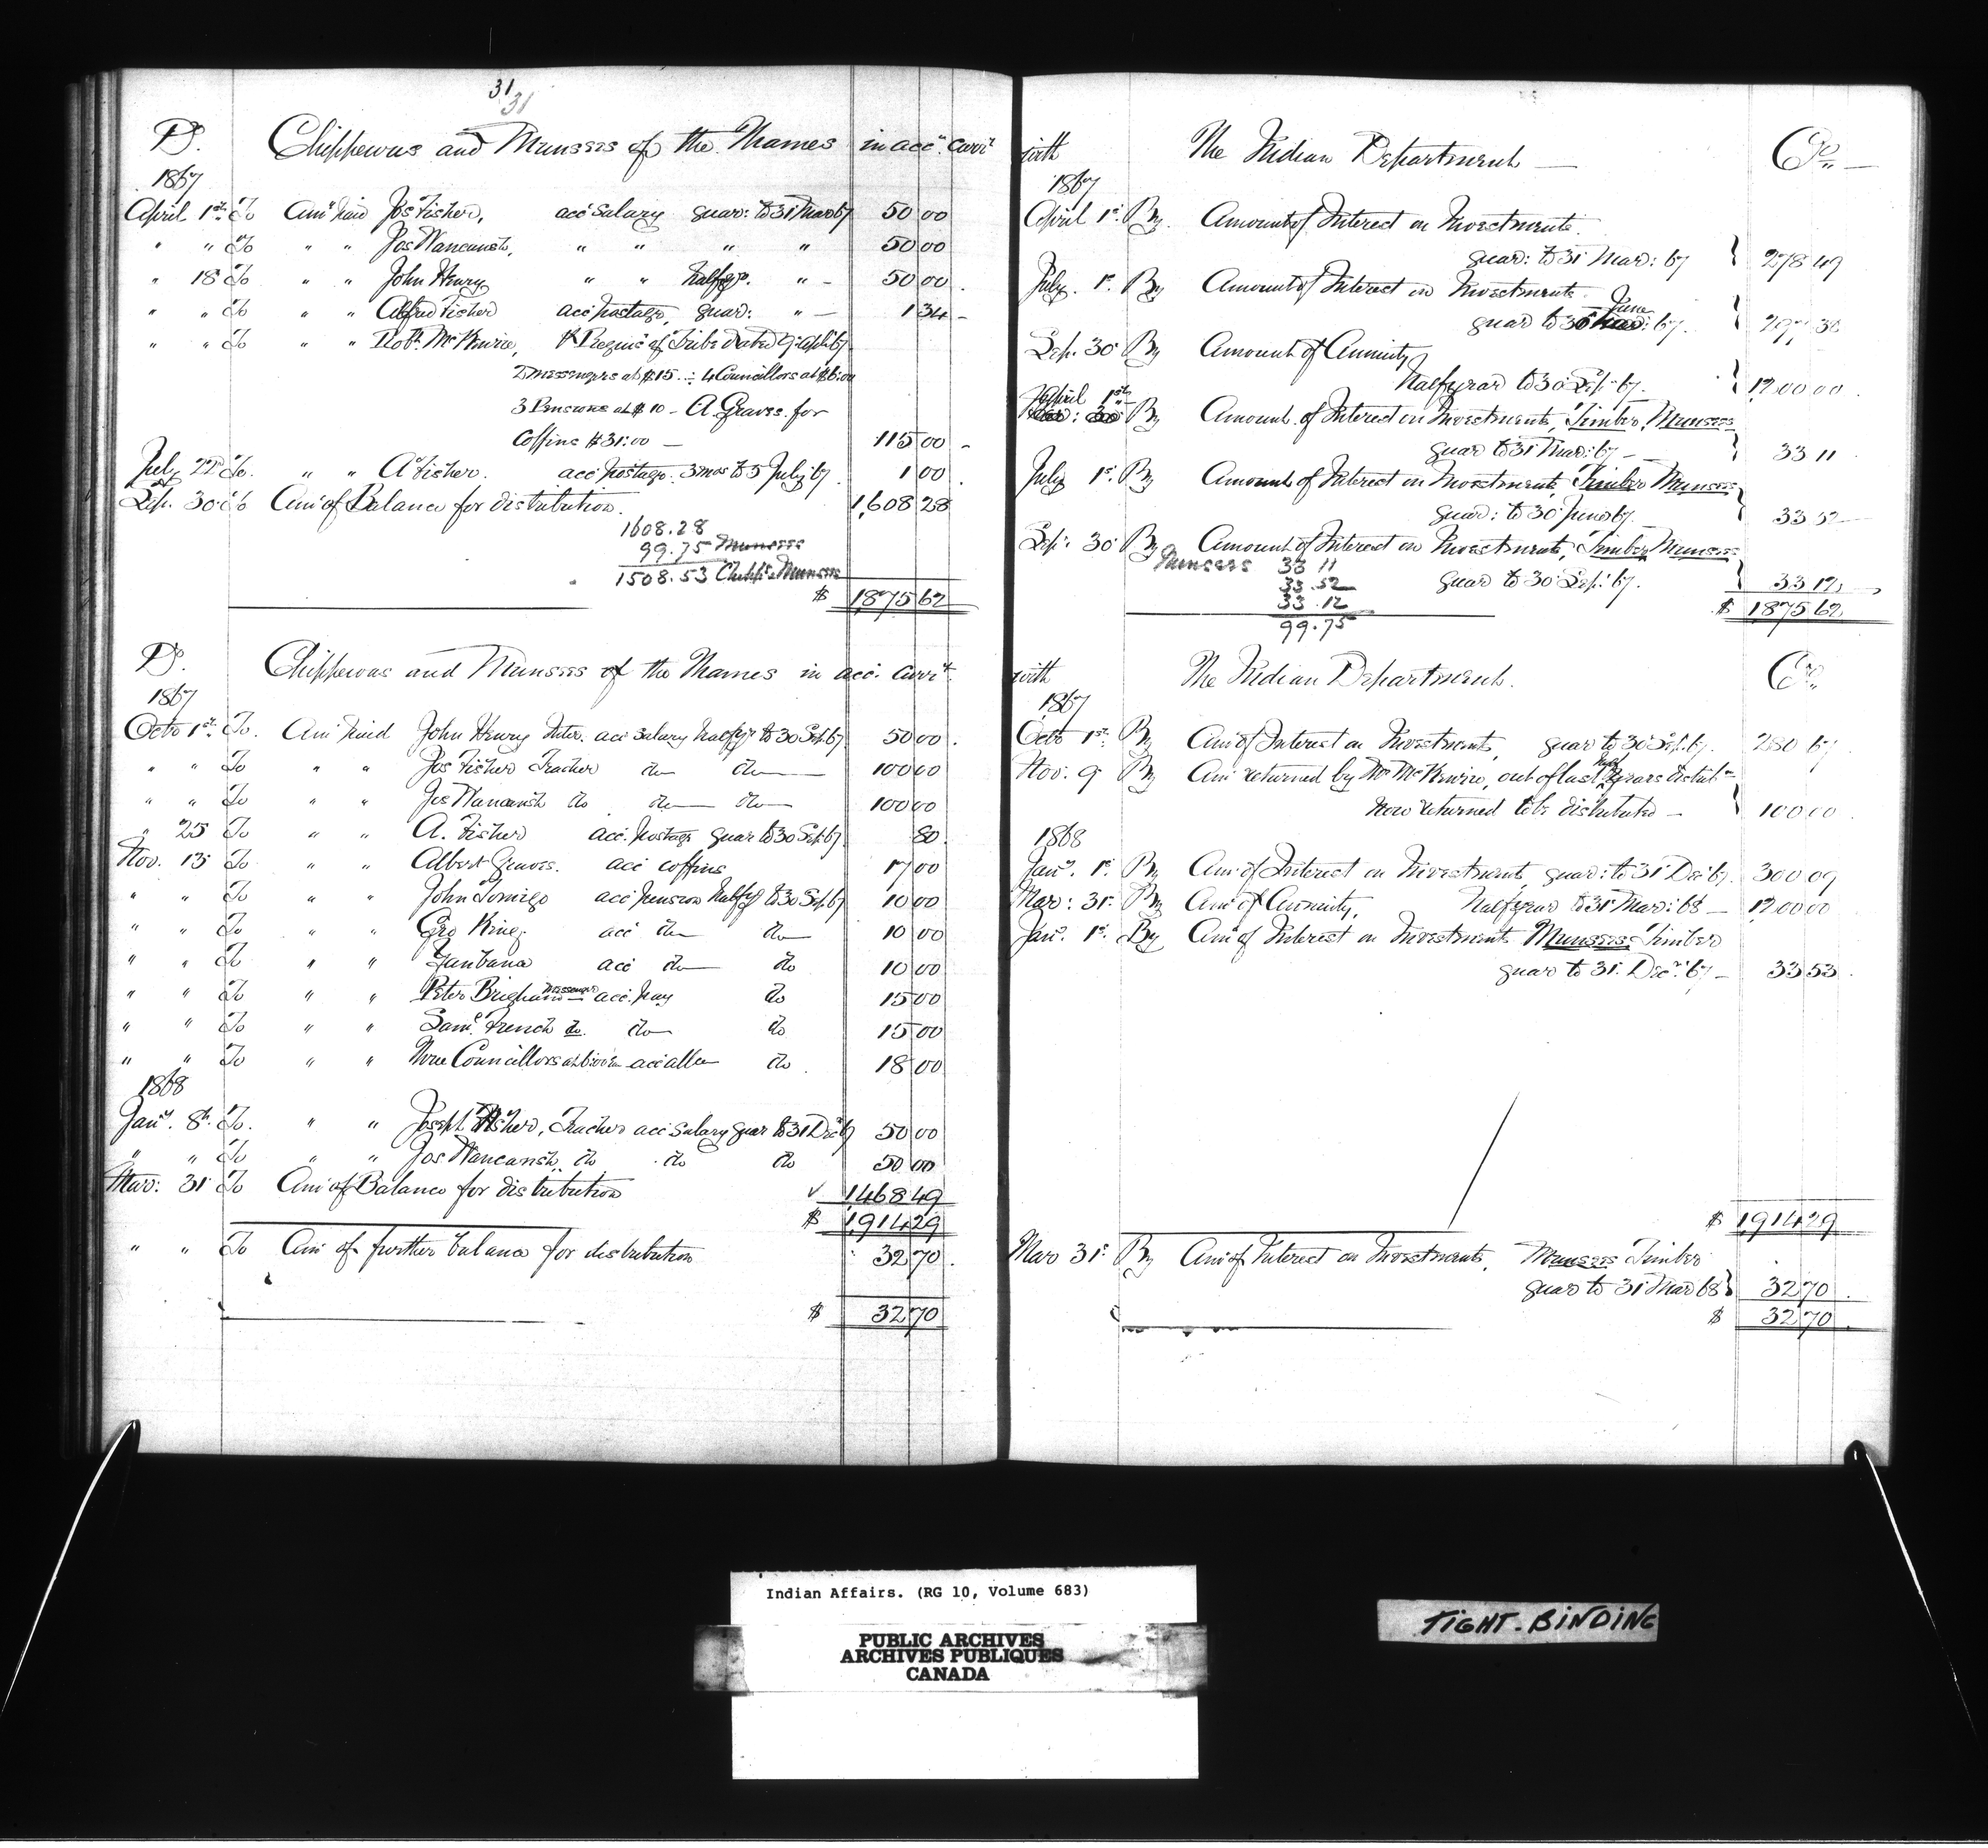 31
31
Dr. Chippewas and Munsees of the Thames in acct. Currt
1867
April 1st To Amt paid Jos Fisher, acct salary quar: to 31 Mar 67 50 00
" " To " " Jos Wancaush, " " " " 50 00
" 18 To " " John Henry " " halfyr. " 50 00
" " To " " Alfred Fisher acct postage, quar: " 1 34
" " To " " Robt. McKenzie, Requisn of Tribe dated 9 Apl 67
2 Messengers at $15 .. 4 Councillors at $6.00
3 Pensions at $10 - A. Graves for
Coffins $31.00 — 115 00
July 22d To " " A Fisher. acct postage. 3 mos to 5 July 67 1 00
Sep. 30 To Amt of Balance for distribution. 1,608 28
1608.28
99.75 Munsees
1508.53 Chipps & Munsees
$ 1,875 62
Dr. Chippewas and Munsees of the Thames in acct. Currt.
1867
Octo 1st To Amt paid John Henry Inter. acct salary halfyr to 30 Sep. 67 50 00
" " To " " Jos Fisher Teacher do do 100 00
" " To " " Jos Wancaush do do do 100 00
" 25 To " " A. Fisher acct. postage quar to 30 Sep. 67 80
Nov. 13 To " " Albert Graves. acct coffins 17 00
" " To " " John Tomigo acct pension halfyr to 30 Sep. 67 10 00
" " To " " Geo King acct do do 10 00
" " To " " acct do do 10 00
" " To " " Peter Brigham Messenger acct. pay do 15 00
" " To " " Saml. French do. do do 15 00
" " To " " Three Councillors at 6.00 acct allce do 18 00
1868
Jany. 8th To. " " Joseph Fisher, Teacher acct salary quar to 31 Dec 67 50 00
" " To " " Jos Wancaush do do do 50 00
Mar: 31 To Amt of Balance for distribution 1,468 49
$ 1,914 29
" " To Amt of further balance for distribution 32 70
$ 32 70
with The Indian Department Cr.
1867
April 1st. By Amount of Interest on Investments.
quar: to 31 Mar: 67 278 49
July. 1st. By Amount of Interest on Investments.
quar to 30 June 67. 297 38
Sep. 30 By Amount of Annuity
halfyear to 30 Sep. 67. 1200 00
April 1st By Amount of Interest on Investments, Timber, Munsees
quar to 31 Mar: 67 33 11
July 1st. By Amount of Interest on Investments, Timber Munsees
quar: to 30 June 67 33 52
Sep. 30 By Amount of Interest on Investments, Timber Munsees
quar to 30 Sep. 67. 33 12
Munsees 33 11
33.52
33.12
99.75
$ 1,875 62
with The Indian Department. Cr.
1867
Octo 1st. By Amt of Interest on Investments, quar to 30 Sep. 67. 280 67
Nov. 9 By Amt returned by Mr McKenzie, out of last half years distribn
now returned to be distributed 100 00
1868
Jany. 1st. By Amt of Interest on Investments quar: to 31 Dec 67. 300 09
Mar: 31. By Amt of Annuity. halfyear to 31 Mar: 68 1200 00
Jany. 1st. By Amt of Interest on Investments Munsees Timber
quar to 31. Decr. 67 33 53
$ 1,914 29
Mar 31st By Amt of Interest on Investments, Munsees Timber
quar to 31 Mar 68 32 70
$ 32 70
Indian Affairs. (RG 10, Volume 683)
PUBLIC ARCHIVES
ARCHIVES PUBLIQUES
CANADA
TIGHT-BINDING